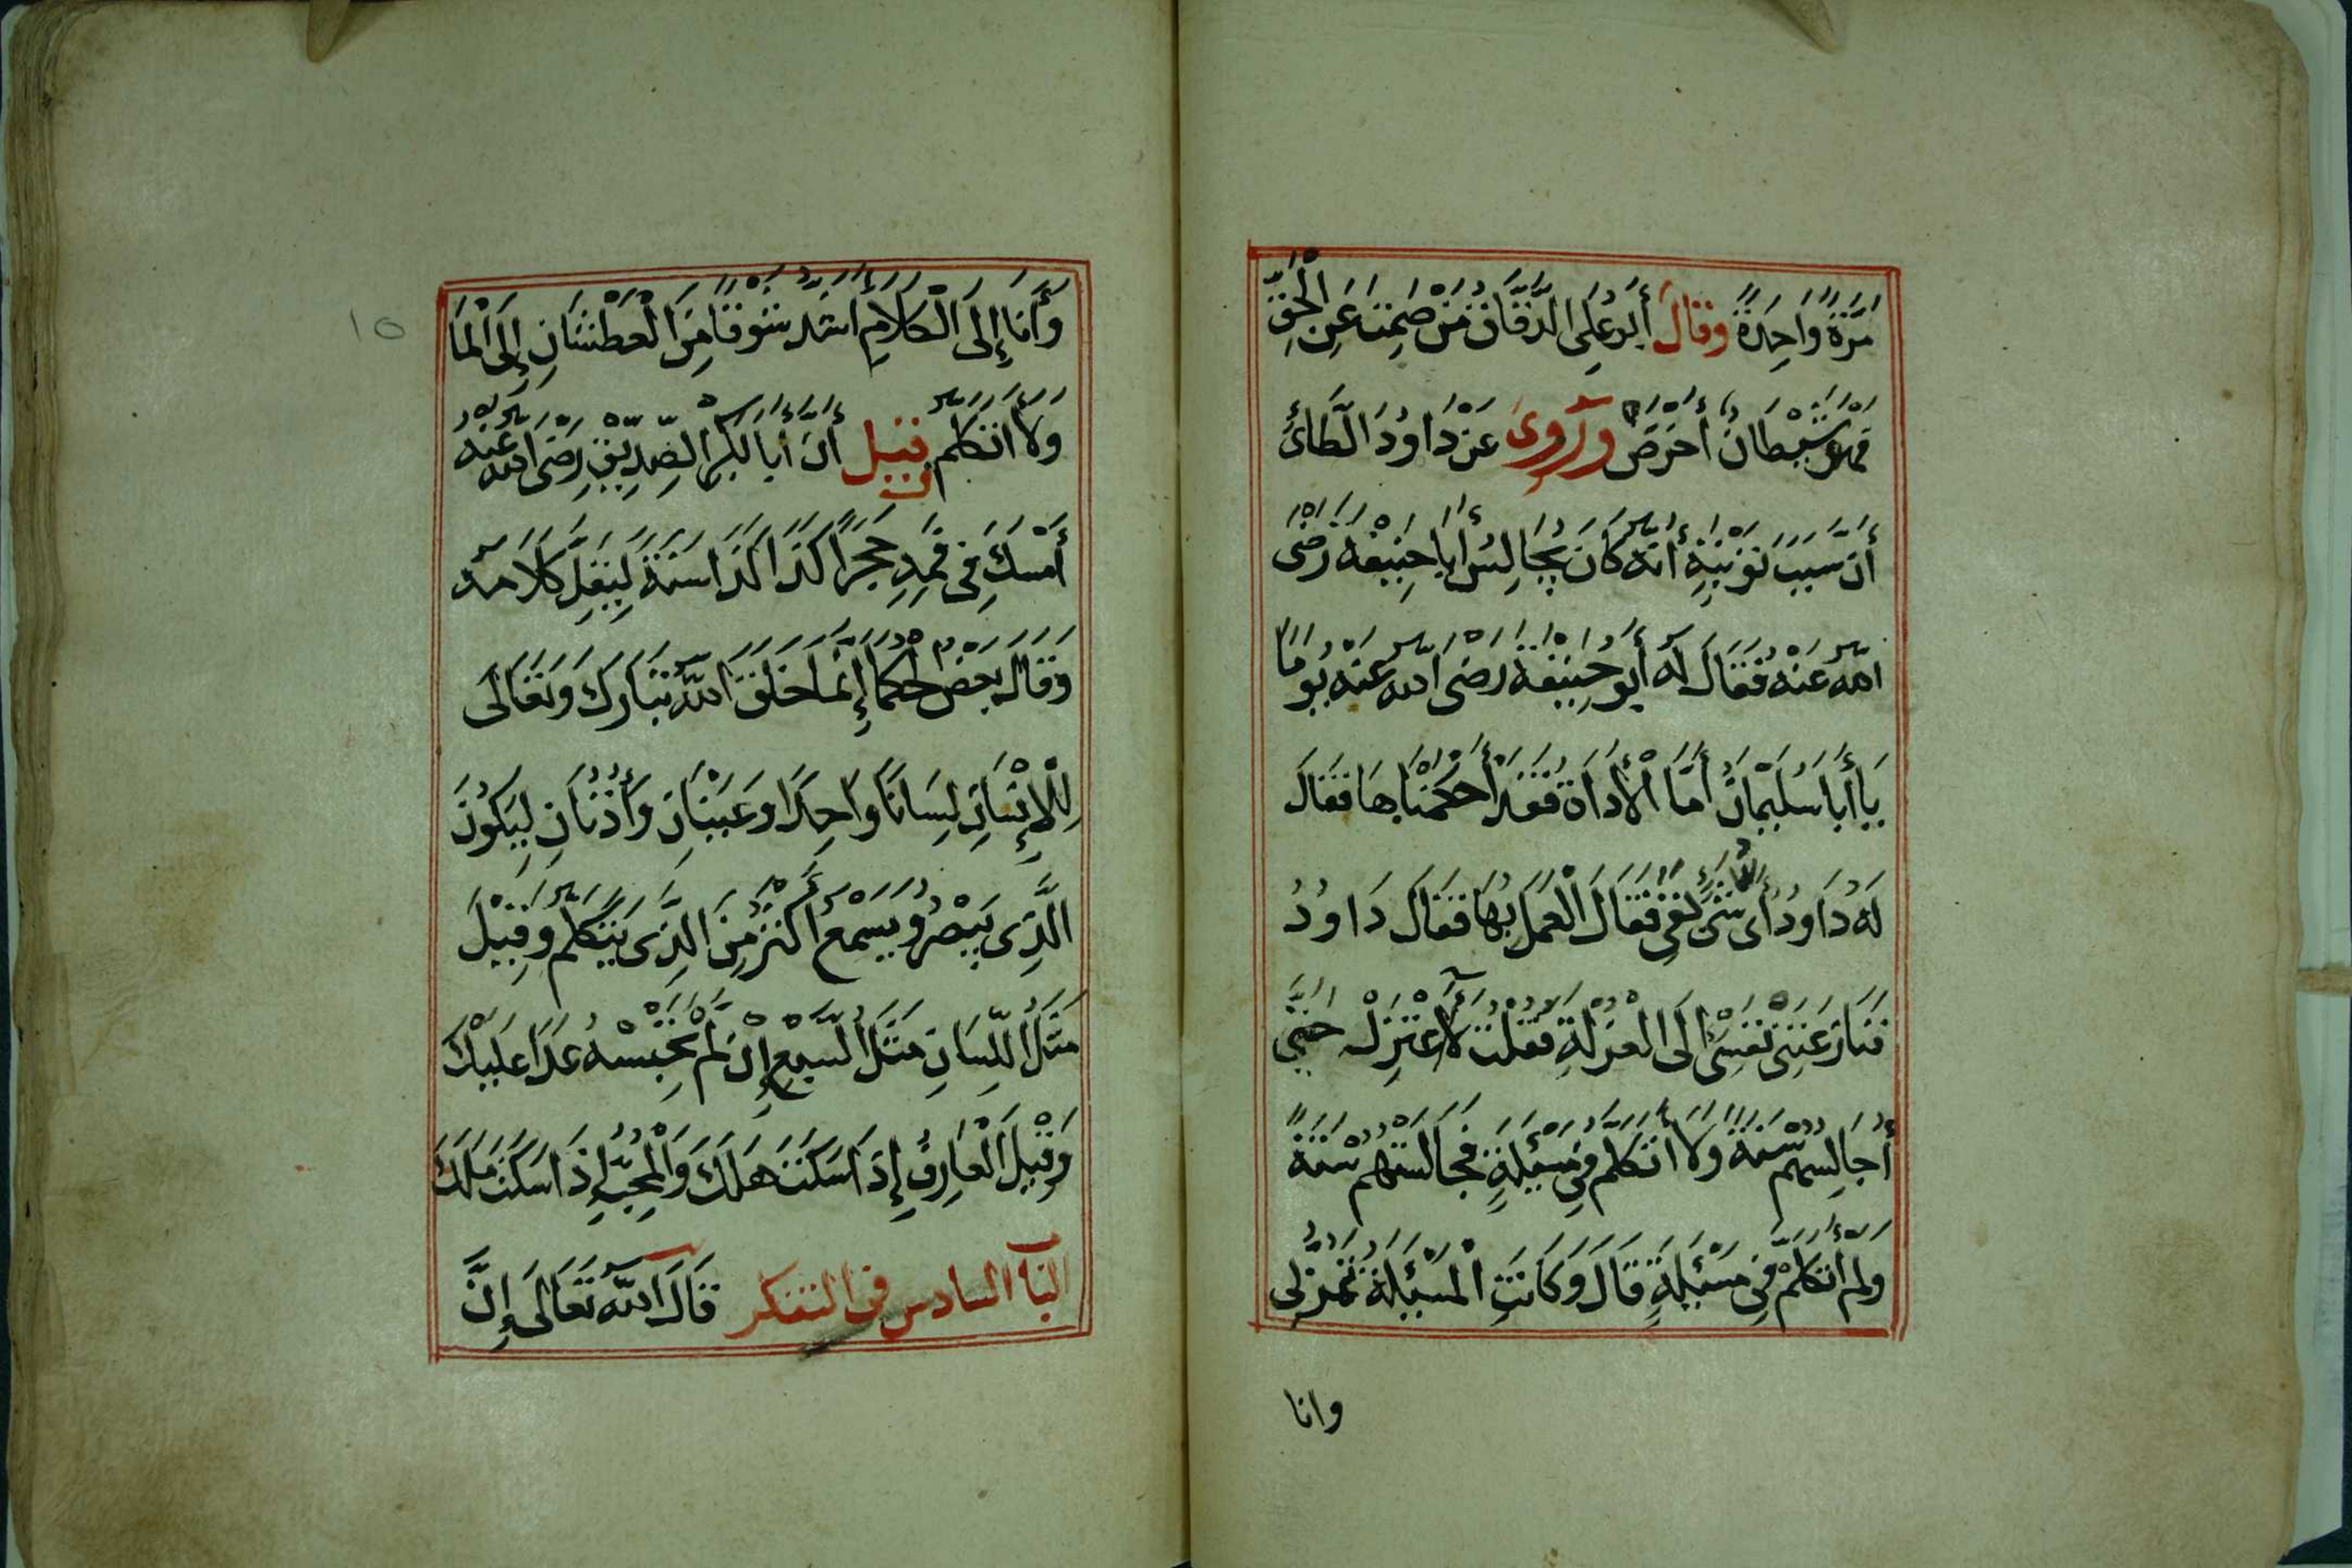 مَرَّةً وَاحِدَةً وَقَالَ أَبُو عَلِى الدَّقَّاقُ مَنْ صَمِتَ عَنِ الْحَقِّ
فَهُوَ شَيْطَانٌ أَخْرَصٌ وَرُوِىَ عَنْ دَاوُدَ الطَّائِ
أَنَّ سَبَبَ تَوْبَتِهِ أَنَّهُ كَانَ يُجَالِسُ أَبَا حَنِيفَةَ رَضِىَ
اللَّهُ عَنْهُ فَقَالَ لَهُ أَبُو حَنِيفَةَ رَضِىَ اللَّهُ عَنْهُ يَوْمًا
يَا أَبَا سُلَيْمَانَ أَمَّا الْأَدَاةُ فَقَدْ أَحْكَمْنَاهَا فَقَالَ
لَهُ دَاوُدُ أَىُّ شَىْءٍ بَقِىَ فَقَالَ الْعَمَلُ بِهَا فَقَالَ دَاوُدُ
فَنَازَعَتْنِى نَفْسِى إِلَى الْعُزْلَةِ فَقُلْتُ لَا أَعْتَزِلُ حَتَّى
أُجَالِسَهُمْ سَنَةً وَلَا أَتَكَلَّمَ فِى مَسْئَلَةٍ فَجَالَسْتُهُمْ سَنَةً
وَلَمْ أَتَكَلَّمْ فِى مَسْئَلَةٍ قَالَ وَكَانَتِ الْمَسْئَلَةُ تَمُرُّ لِى
وانا
١٥
وَأَنَا إِلَى الْكَلَامِ أَشَدُّ شَوْقًا مِنَ الْعَطْشَانِ إِلَى الْمَا
وَلَا أَتَكَلَّمُ قِيلَ أَنَّ أَبَا بَكْرٍ الصِّدِّيقِ رَضِىَ اللَّهُ عَنْهُ
أَمْسَكَ فِى فَمِهِ حَجَرًا كَذَا كَذَا سَنَةً لِيَقِلَّ كَلَامَهُ
وَقَالَ بَعْضُ الْحُكَمَا إِنَّمَا خَلَقَ اللَّهُ تَبَارَكَ وَتَعَالَى
لِلْإِنْسَانِ لِسَانًا وَاحِدًا وَعَيْنَانِ وَأُذُنَانِ لِيَكُونَ
الَّذِى يَبْصُرُ وَيَسْمَعُ أَكْثَرُ مِنَ الَّذِى يَتَكَلَّمُ وَقِيلَ
مَثَلُ اللِّسَانِ مَثَلُ السَّبُعِ إِنْ لَمْ تَحْبِسْهُ عَدَا عَلَيْكَ
وَقِيلَ الْعَارِفُ إِذَا سَكَتَ هَلَكَ وَالْمُحِبُّ إِذَا سَكَتَ مَلَكَ
البَابُ السادس فى التفكر قَالَ اللَّهُ تَعَالَى إِنَّ